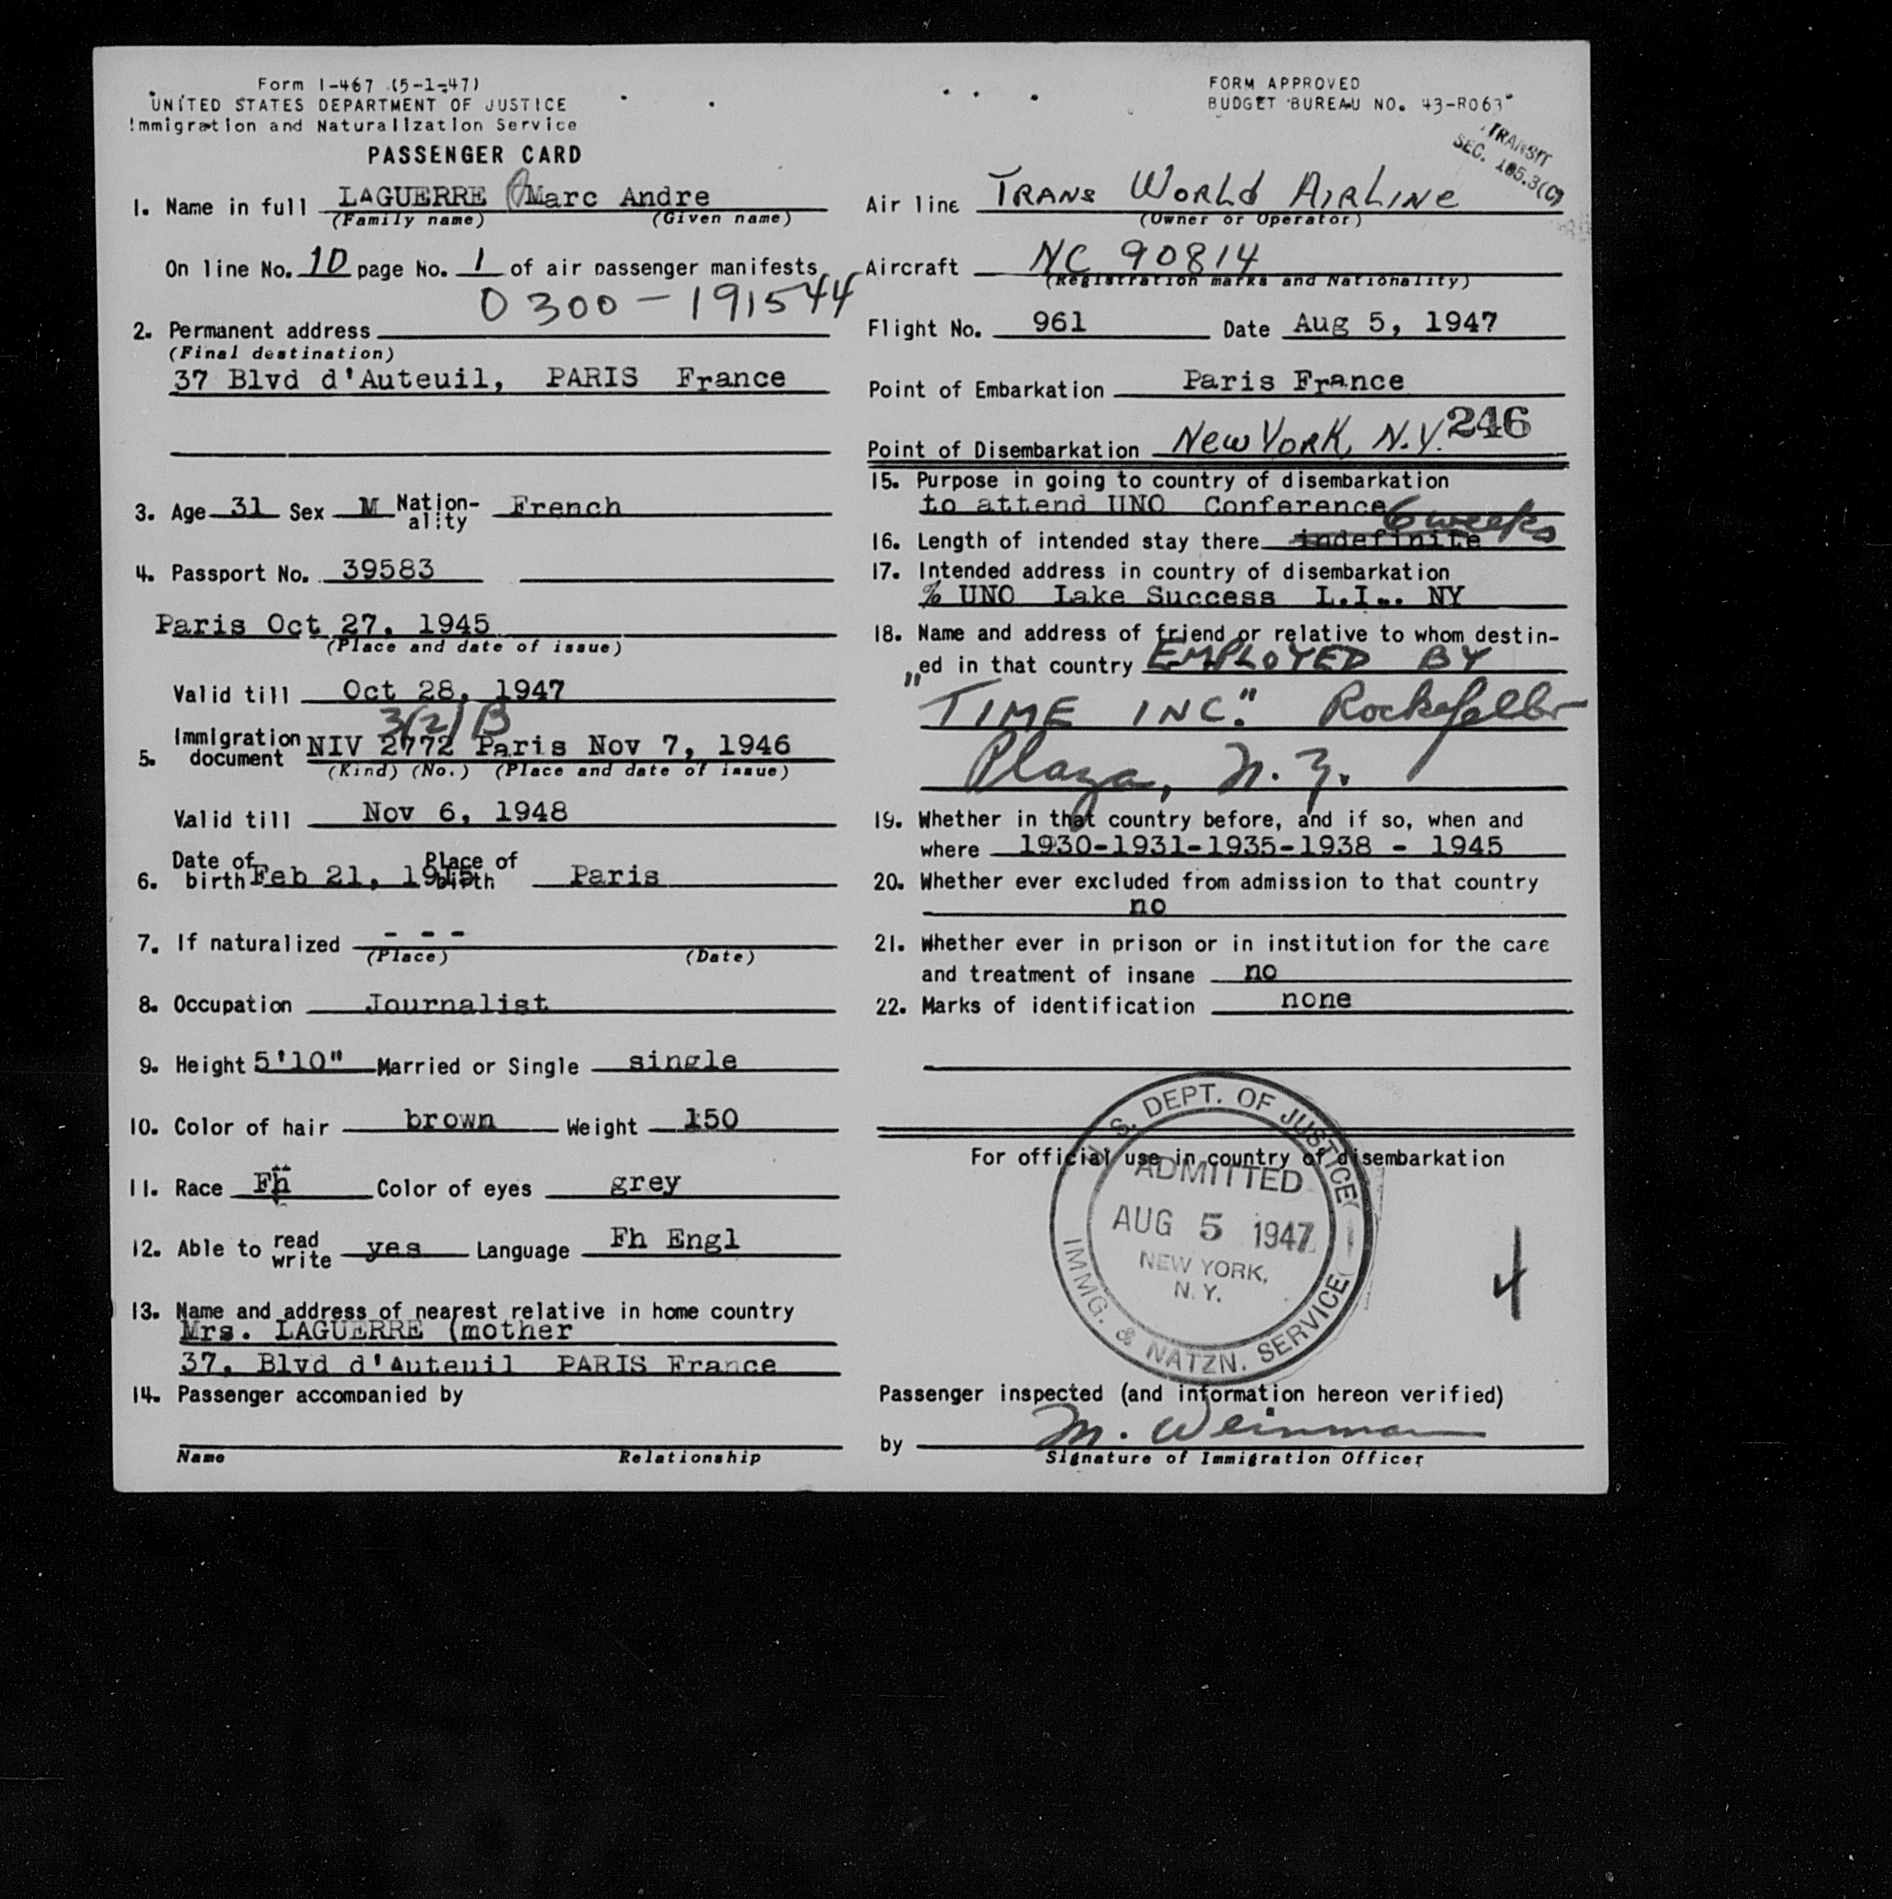 Form I-467 (5-1-47)
UNITED STATES DEPARTMENT OF JUSTICE
Immigration and Naturalization Service
PASSENGER CARD
FORM APPROVED
BUDGET BUREAU NO. 43-R063
TRANSIT
SEC. 165.3(C)
1. Name in full LAGUERRE Marc Andre
(Family name) (Given name)
On line No. 10 page No. 1 of air passenger manifests
0300-191544
2. Permanent address
(Final destination)
37 Blvd d'Auteuil, PARIS France
3. Age 31 Sex M Nation-ality French
4. Passport No. 39583
Paris Oct 27, 1945
(Place and date of issue)
Valid till Oct 28, 1947
3(2) B
5. Immigration document NIV 2772 Paris Nov 7, 1946
(Kind) (No.) (Place and date of issue)
Valid till Nov 6, 1948
6. Date of birth Feb 21, 1915 Place of birth Paris
7. If naturalized - - -
(Place) (Date)
8. Occupation Journalist
9. Height 5'10" Married or Single single
10. Color of hair brown Weight 150
11. Race Fh Color of eyes grey
12. Able to read write yes Language Fh Engl
13. Name and address of nearest relative in home country
Mrs. LAGUERRE (mother
37, Blvd d'Auteuil PARIS France
14. Passenger accompanied by
Name Relationship
Air line TRANS WORLD AIRLINE
(Owner or Operator)
Aircraft NC 90814
(Registration marks and Nationality)
Flight No. 961 Date Aug 5, 1947
Point of Embarkation Paris France
Point of Disembarkation New York, N.Y. 246
15. Purpose in going to country of disembarkation
to attend UNO Conference
16. Length of intended stay there indefinite 6 weeks
17. Intended address in country of disembarkation
% UNO Lake Success L.I.. NY
18. Name and address of friend or relative to whom destin-
ed in that country EMPLOYED BY
"TIME INC." Rockefeller
Plaza, N.Y.
19. Whether in that country before, and if so, when and
where 1930-1931-1935-1938 - 1945
20. Whether ever excluded from admission to that country
no
21. Whether ever in prison or in institution for the care
and treatment of insane no
22. Marks of identification none
For official use in country of disembarkation
U. S. DEPT. OF JUSTICE
ADMITTED
AUG 5 1947
NEW YORK,
N. Y.
IMMG. & NATZN. SERVICE
4
Passenger inspected (and information hereon verified)
by M. Weinman
Signature of Immigration Officer